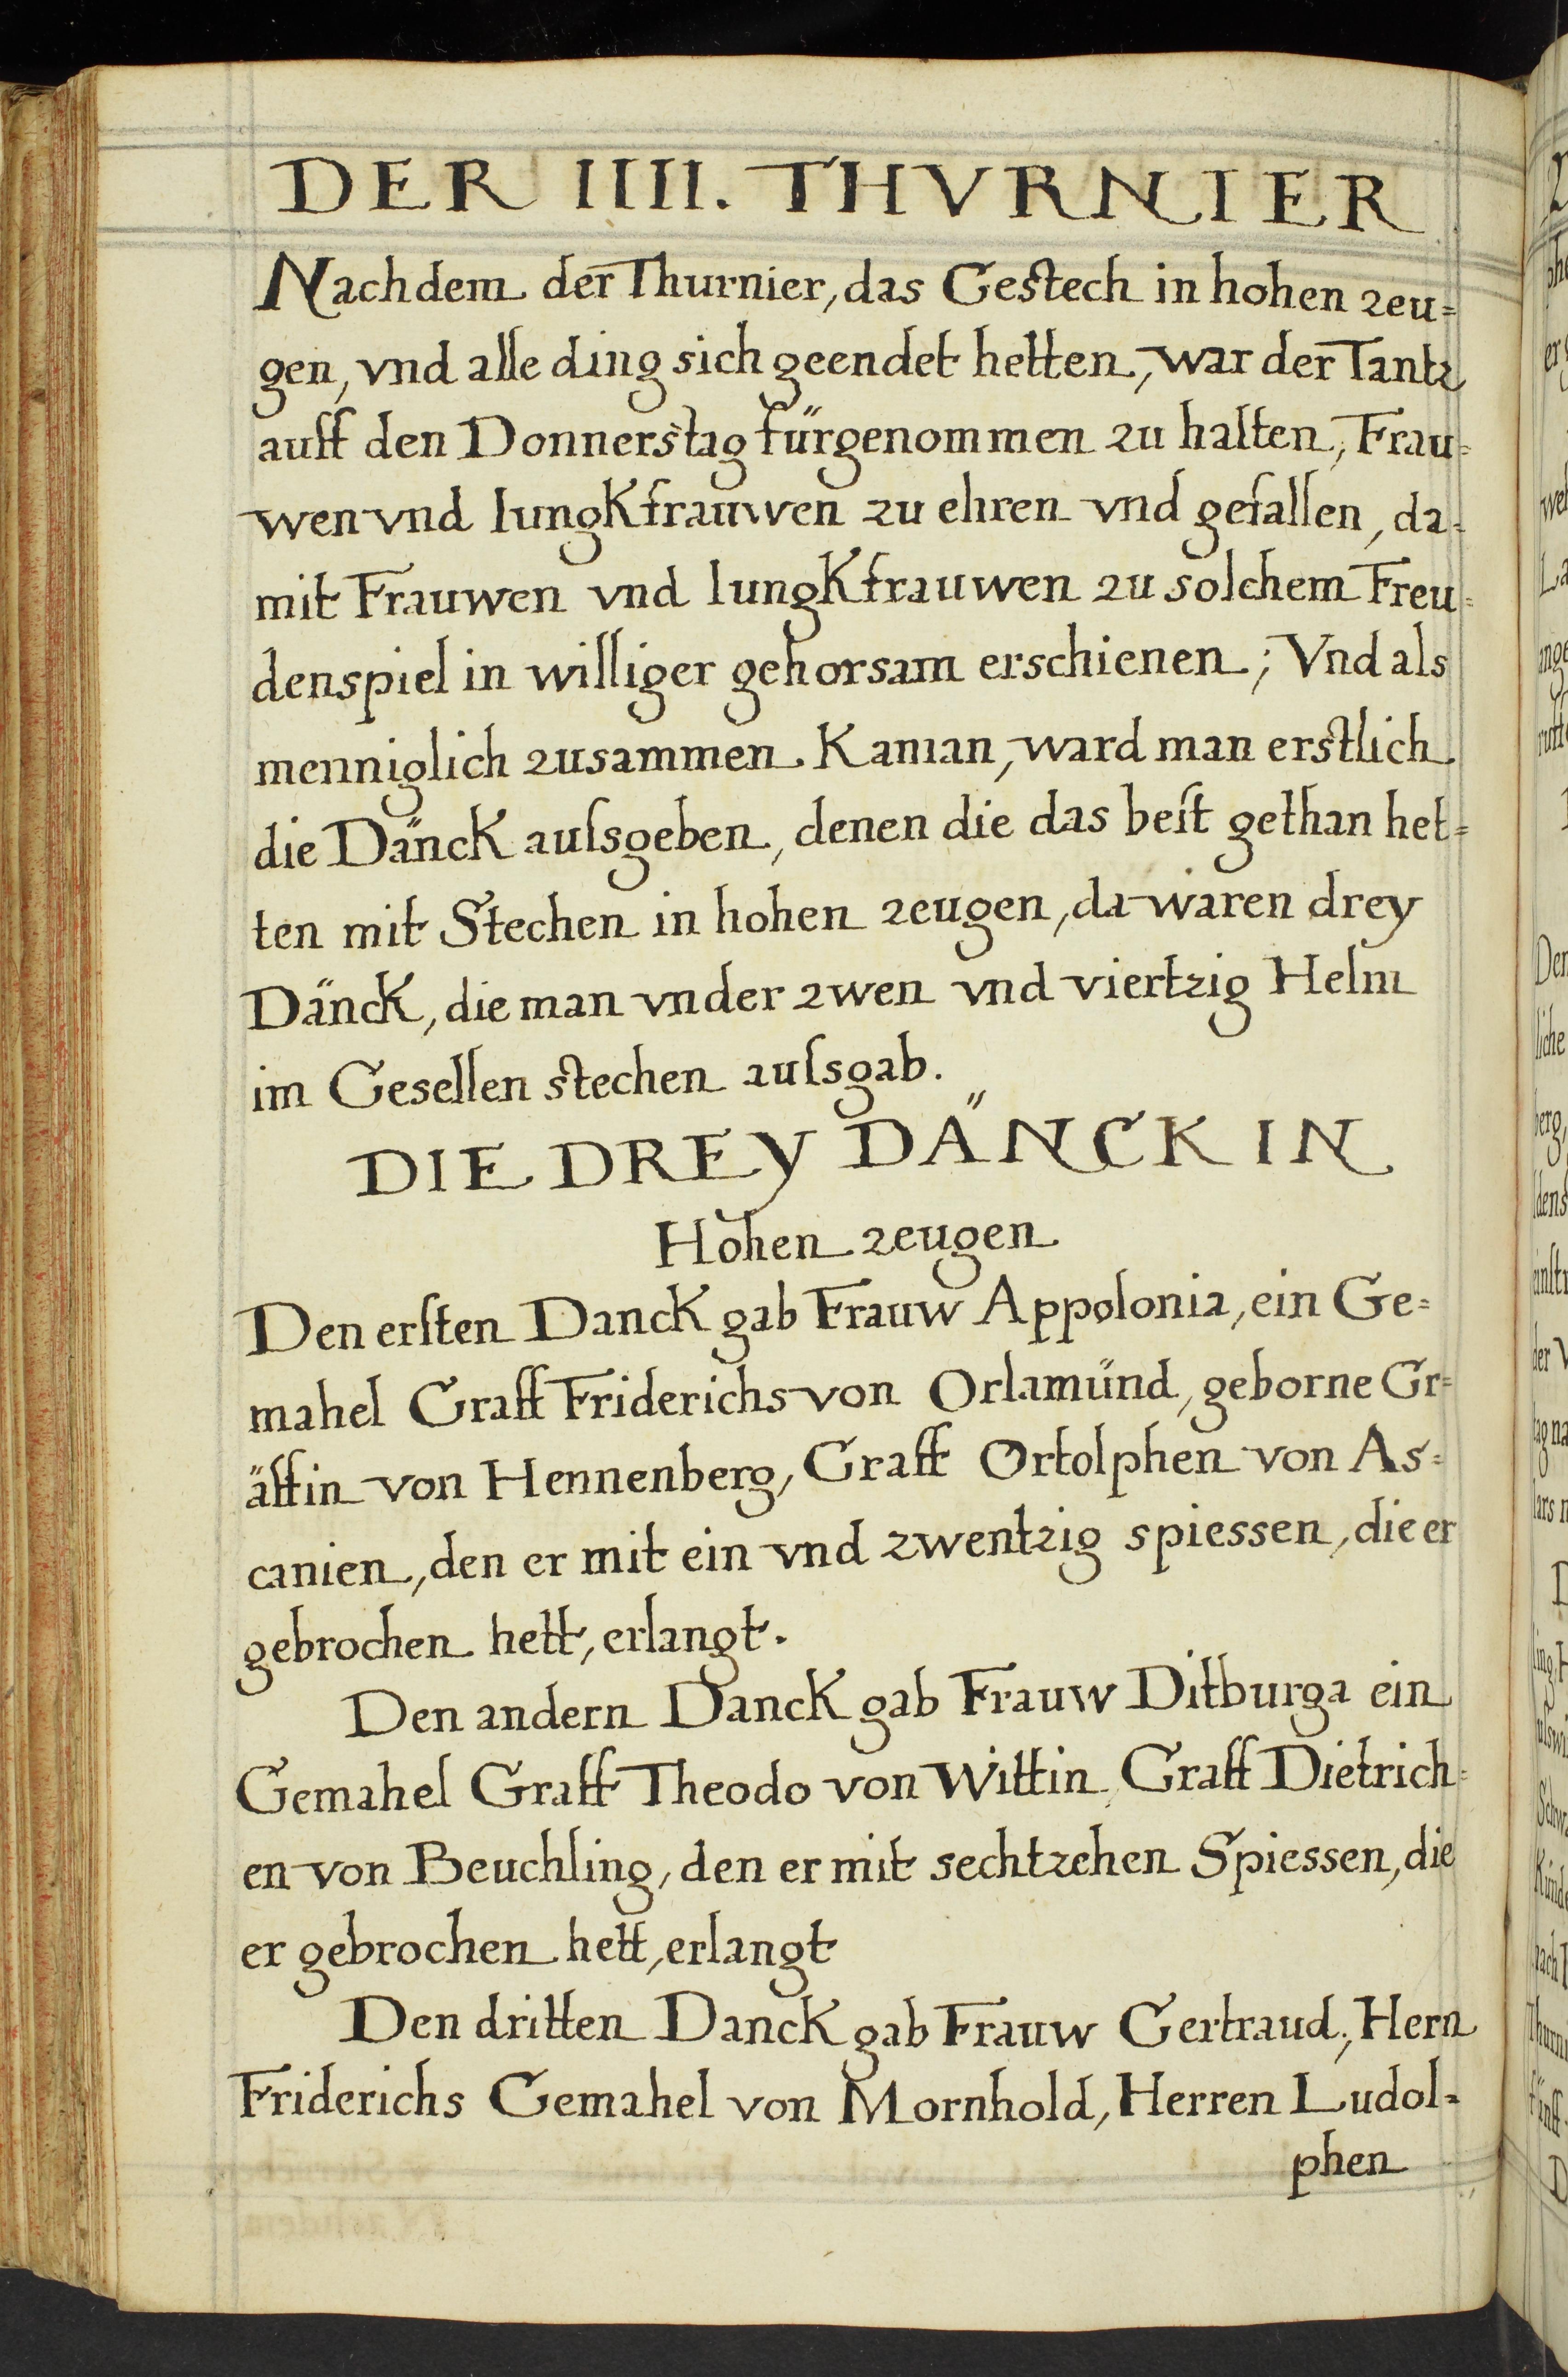 DER IIII. THVRNIER
Nachdem der Thurnier, das Gestech in hohen zeu=
gen, vnd alle ding sich geendet hetten, war der Tantz
auff den Donnerstag fürgenommen zu halten, Frau=
wen vnd Iungkfrauwen zu ehren vnd gefallen, da=
mit Frauwen vnd Iungkfrauwen zu solchem Freu=
denspiel in williger gehorsam erschienen; Vnd als
menniglich zusammen Kaman, ward man erstlich
die Dänck auſsgeben, denen die das beſt gethan het=
ten mit Stechen in hohen zeugen, da waren drey
Dänck, die man vnder zwen vnd viertzig Helm
im Gesellen stechen auſsgab.
DIE DREY DÄNCK IN
Hohen zeugen
Den erſten Danck gab Frauw Appolonia, ein Ge=
mahel Graff Friderichs von Orlamünd, geborne Gr=
äffin von Hennenberg, Graff Ortolphen von As=
canien, den er mit ein vnd zwentzig spiessen, die er
gebrochen hett, erlangt.
Den andern Danck gab Frauw Ditburga ein
Gemahel Graff Theodo von Wittin, Graff Dietrich=
en von Beuchling, den er mit sechtzehen Spiessen, die
er gebrochen hett, erlangt
Den dritten Danck gab Frauw Gertraud, Hern
Friderichs Gemahel von Mornhold, Herren Ludol=
phen